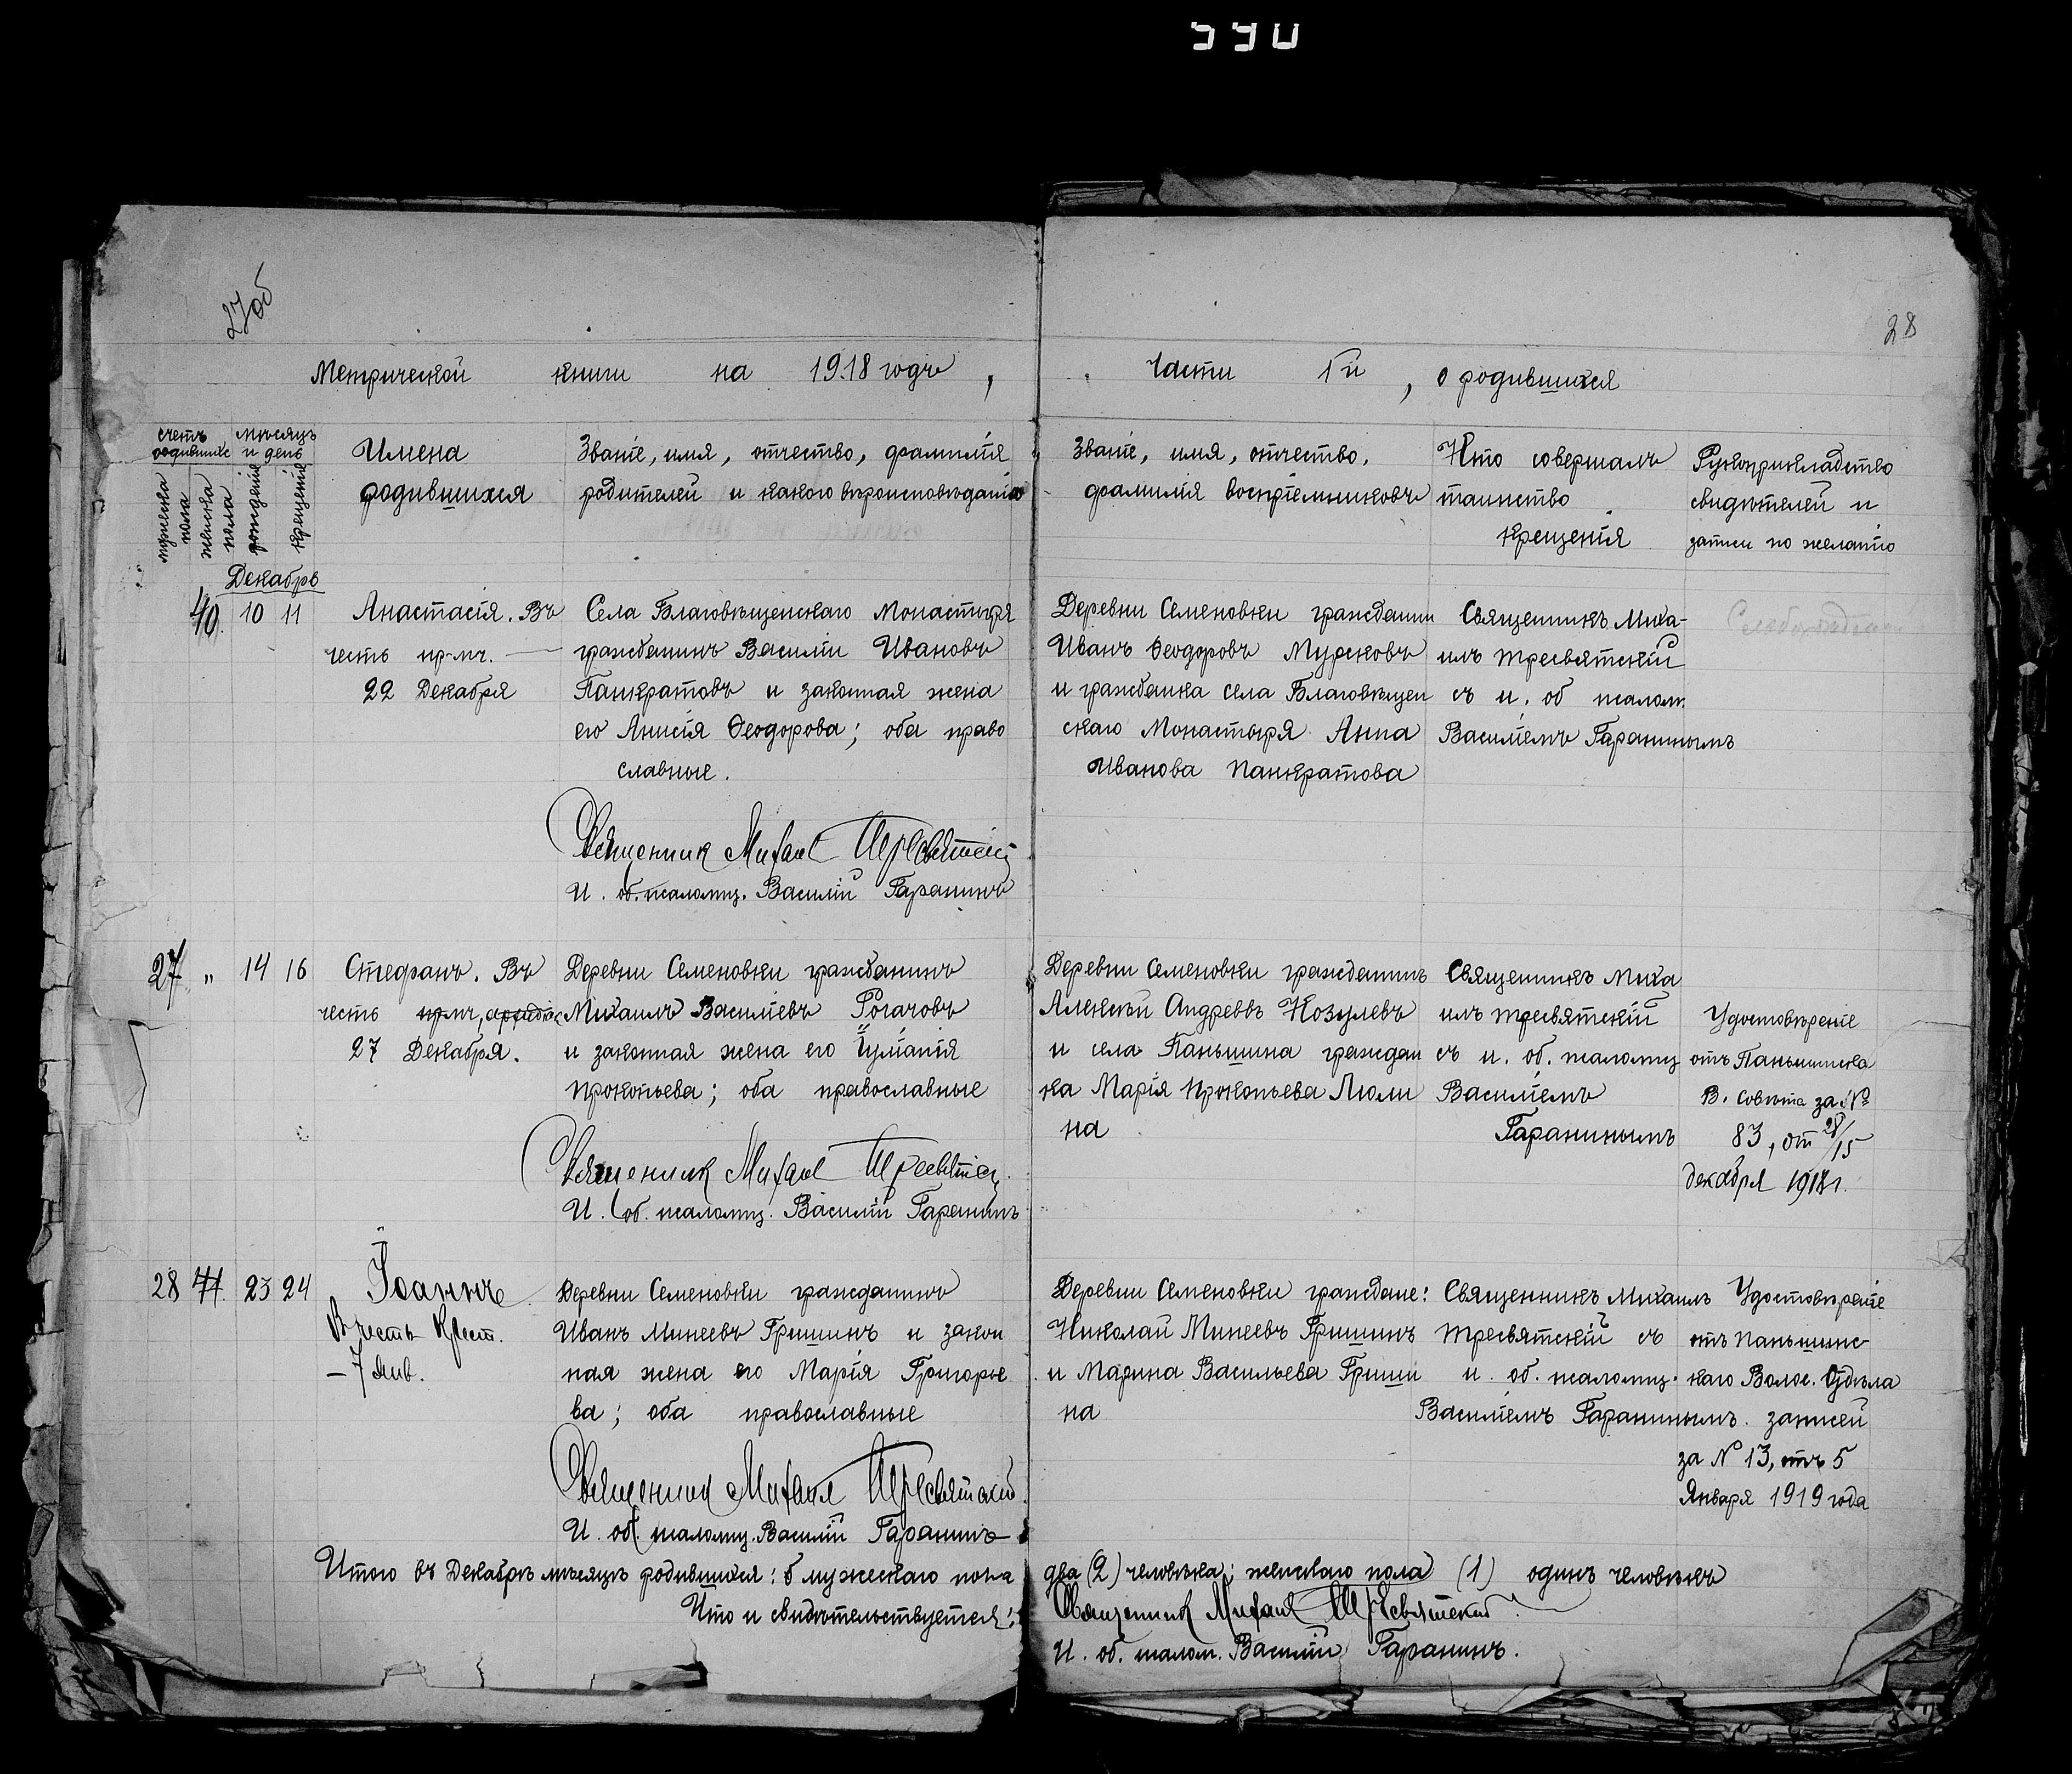 590
27об
28
Метрической книги на 1918 годъ,
Части Iй, о родившихся
счетъ родившихс
мужеска пола
женска пола
мѣсяцъ и день
рожденія
крещенія
Имена
родившихся
Званіе, имя, отчество, фамилія
родителей и какого вѣроисповѣданія
Званіе, имя, отчество,
фамилія воспріемниковъ
Кто совершалъ
таинство
крещенія
Рукоприкладство
свидѣтелей и
записи по желанію
Декабрь
40. 10 11
Анастасія. Въ
честь пр-мч.
22 Декабря
Села Благовѣщенскаго Монастыря
гражданинъ Василій Ивановъ
Панкратовъ и законная жена
его Анисія Ѳеодорова; оба право
славные.
Деревни Семеновки гражданин
Иванъ Ѳеодоровъ Мурсковъ
и гражданка села Благовѣщен
скаго Монастыря Анна
Иванова Панкратова
Священникъ Миха-
илъ Тресвятскій
съ и. об псалом.
Василіемъ Гаранинымъ
Священник Михаил Тресвятскій
И. об. псаломщ. Василій Гаранинъ
27 " 14 16
Стефанъ. Въ
честь пр-мч, архидіак
27 Декабря.
Деревни Семеновки гражданинъ
Михаилъ Василіевъ Рогачовъ
и законная жена его Іуліанія
Прокопьева; оба православные
Деревни Семеновки гражданинъ
Алексѣй Андреевъ Козулевъ
и села Паньшина граждан
ка Марія Прокопьева Люли
на
Священникъ Миха
илъ Тресвятскій
съ и. об. псаломщ
Василіемъ
Гаранинымъ
Удостовѣреніе
отъ Паньшинска
В. Совѣта за №
83, от 28/15
декабря 1918г.
Священник Михаил Тресвятскій
И. об. псаломщ. Василій Гаранинъ
28 41. 23 24
Іоаннъ
В честь Крест.
– 7 янв.
Деревни Семеновки гражданинъ
Иванъ Минеевъ Гришинъ и закон
ная жена его Марія Григорье
ва; оба православные
Деревни Семеновки граждане:
Николай Минеевъ Гришинъ
и Марина Васильева Гриши
на
Священникъ Михаилъ
Тресвятскій съ
и. об. псаломщ.
Василіемъ Гаранинымъ.
Удостовѣреніе
отъ Паньшинс-
каго Волос. Отдѣла
записей
за № 13, отъ 5
Января 1919 года
Священник Михаил Тресвятский
И. об. псаломщ. Василій Гаранинъ
Итого въ Декабрѣ мѣсяцѣ родившихся: мужескаго пола два (2) человѣка; женскаго пола (1) одинъ человѣкъ
Что и свидѣтельствуется:
Священник Михаил Тресвятский
И. об. псалом. Василій Гаранинъ.